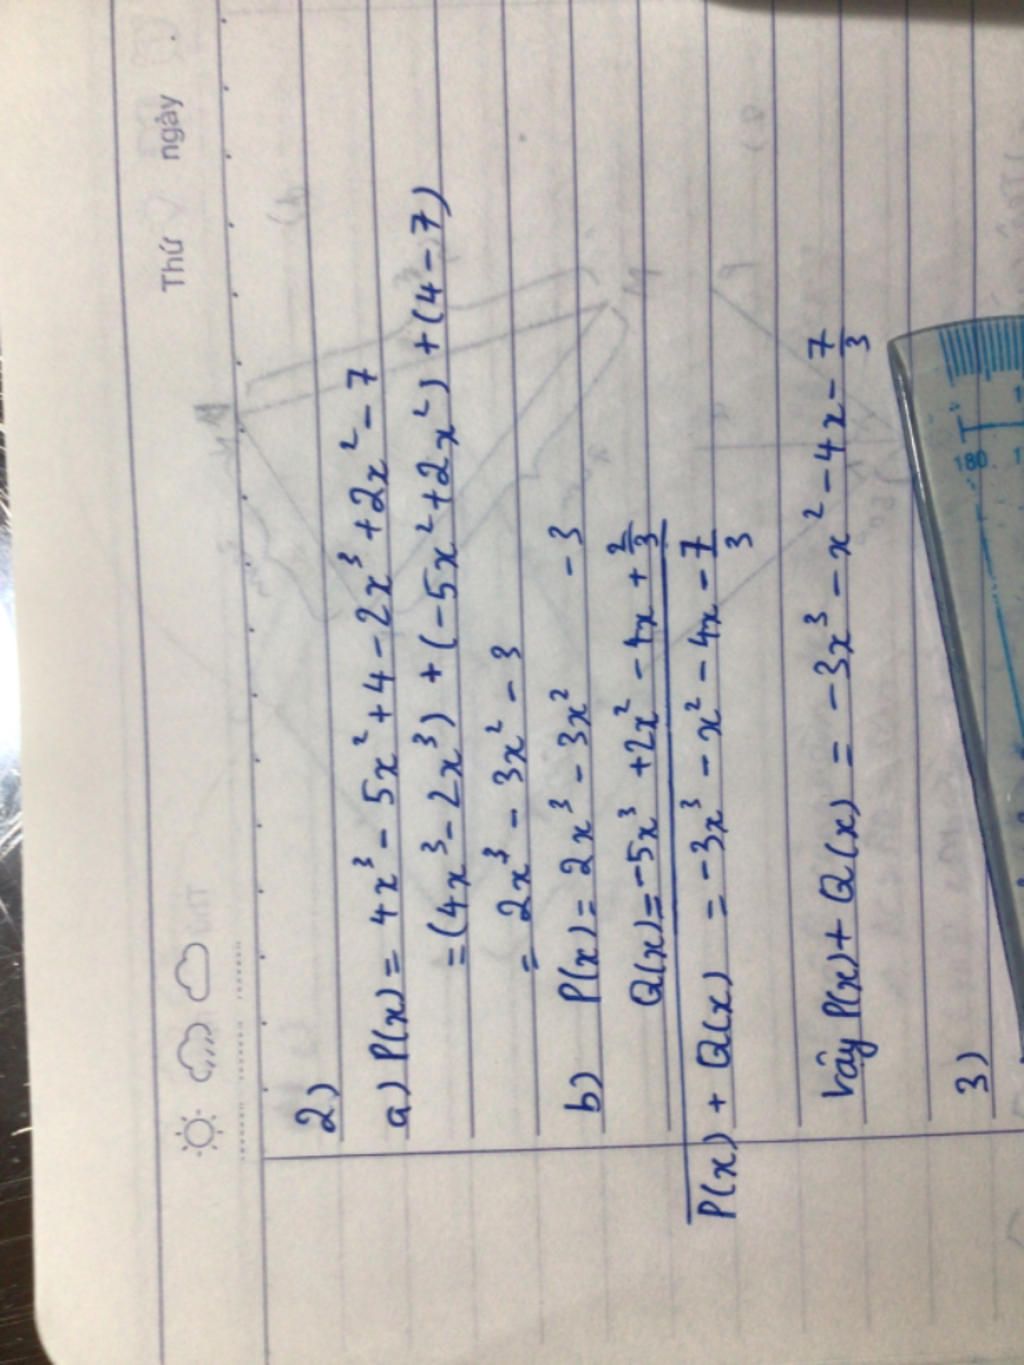 Thứ ngày
2)
a) P(x) = 4x³ - 5x² + 4 - 2x³ + 2x² - 7
= (4x³ - 2x³) + (-5x² + 2x²) + (4 - 7)
= 2x³ - 3x² - 3
b) P(x) = 2x³ - 3x² - 3
Q(x) = -5x³ + 2x² - 4x + 2/3
P(x) + Q(x) = -3x³ - x² - 4x - 7/3
Vây P(x) + Q(x) = -3x³ - x² - 4x - 7/3
180
3)